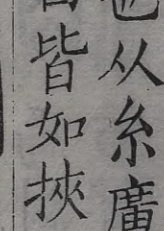 也从糸廣
皆如挾